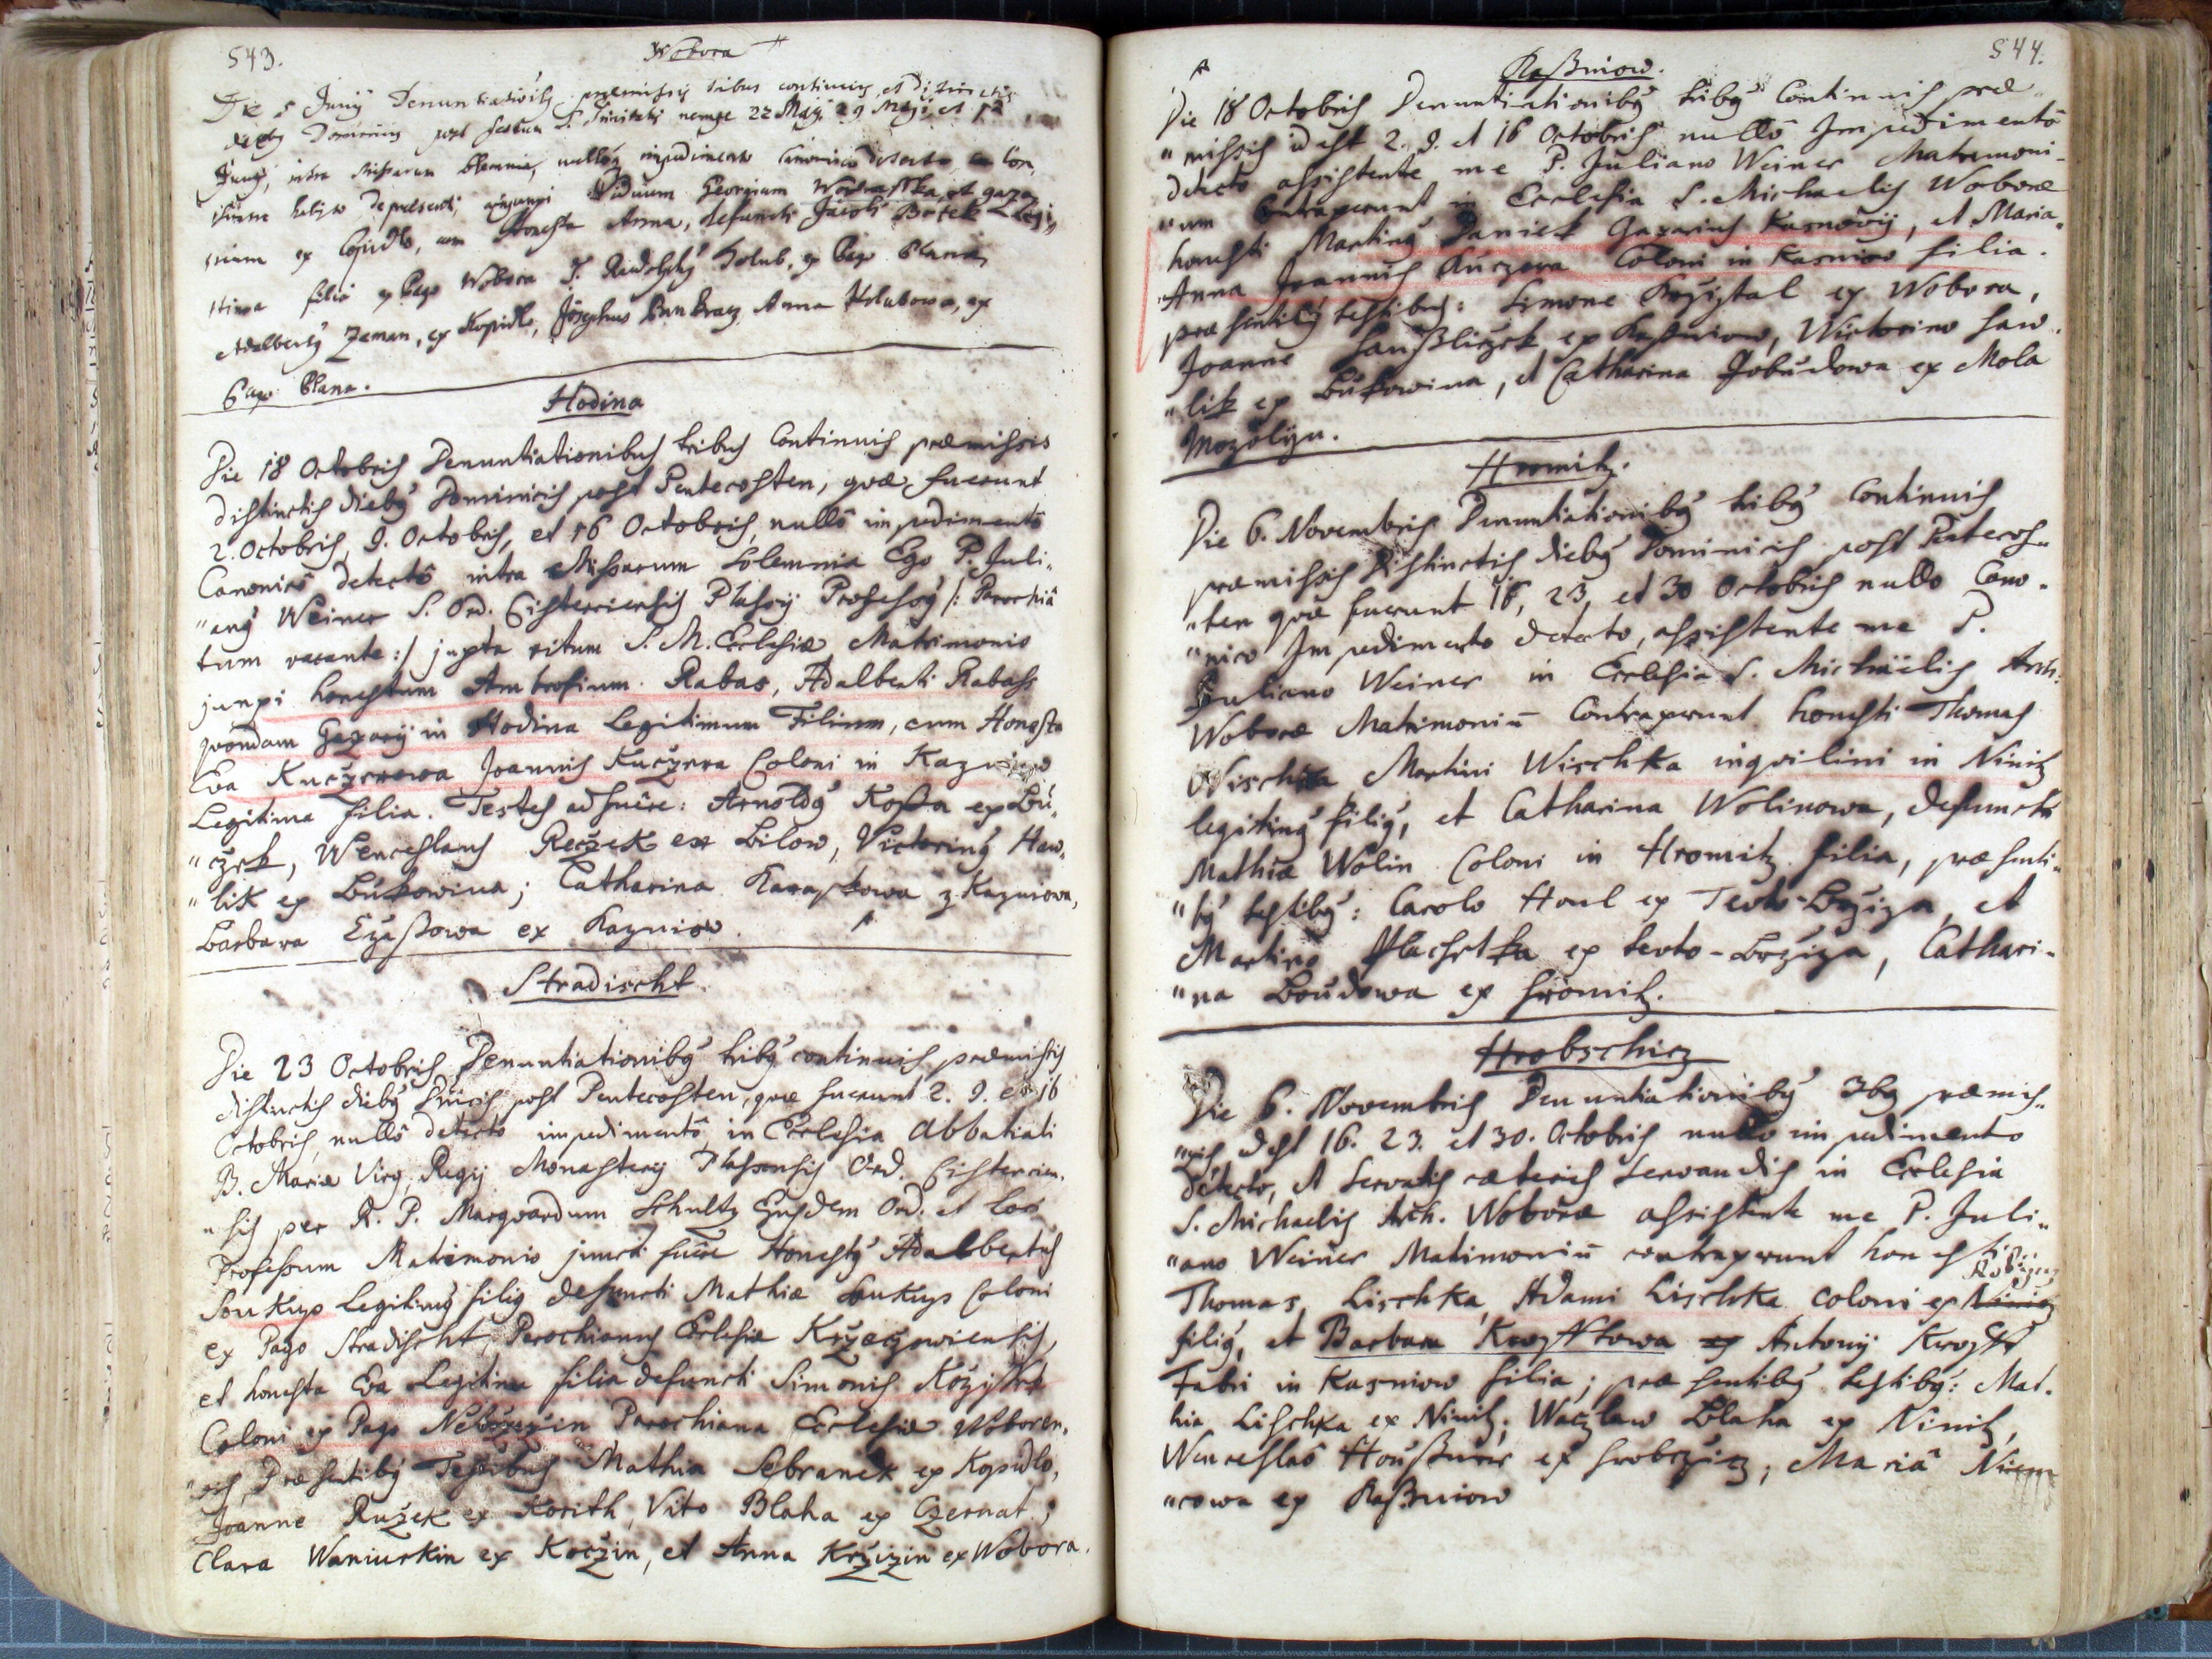 543.
Wobora
Die 5 Junÿ Denuntiationibg præmissis tribus continuis, et Distinctis
diebg Dominicis post festum S. Trinitatis nempe 22 Maÿ 29 Maÿ, et
Junÿ, intra Missarum solemnia, nullog impedimento Canonico detecto
habito de præsenti, Viduum Georgium et gaza
ex Kopidlo, cum Honesta Anna, defuncti Jacobi Legi„
tima filia ex Pago Wobora T. Holub, ex Pago Plana
Adalbertg Zeman, ex Kopidlo, Josephus Anna Holubowa, ex
Pago Plana.
Hodina
Die 18 Octobris Denuntiationibus tribus Continuis præmissis
distinctis diebg Dominicis post Pentecosten, quæ fuerunt
2. Octobris, 9. Octobris, et 16 Octobris, nullô impedimentô
Canonicô detectô intra Missarum solemnia Ego P. Juli„
„ang Weiner S. Ord. Cisterciensis Plassÿ Professg /: Parochiâ
tum vacante :/ juxta ritum S. M. Ecclesiæ Matrimonio
junxi honestum Ambrosium Rabas, Adalberti Rabass
quondam Gazarÿ in Hodina Legitimum Filium, cum Honesta
Eva Kuczerowa Joannis Kuczera Coloni in Kazniow
Legitima filia. Testes adfuêre: Arnoldg Kossa ex Bu„
„czek, Wenceslaus Reczek ex Bilow, Victoring Haw„
„lik ex Bukowina; Catharina Karaskowa z Kazniowa,
Barbara Czessowa ex Kazniow.
Stradischt
Die 23 Octobris Denuntiationibg tribg continuis præmissis
distinctis diebg Dnicis post Pentecosten, quæ fuerunt 2. 9. et 16
Octobris, nullô detecto impedimentô in Ecclesia Abbatiali
B. Mariæ Virg, Regÿ Monasterÿ Plassensis Ord. Cistercien„
„sis per R. P. Marquardum Schultz Ejusdem Ord. et Loci
Professum Matrimonio juncti fuêre Honestg Adalbertus
Soukup Legitimg filig defuncti Mathiæ Soukup Coloni
ex Pago Stradischt, Parochianus Ecclesiæ
et honesta Eva Legitima filia defuncti Simonis
Coloni ex Pago Parochiana Ecclesiæ Woboren„
„sis, Præsentibg Testibus Mathia Sebranek ex Kopidlo,
Joanne Ružek ex Korith, Vito Blaha ex Czernat;
Clara Waniurkin ex Koczin, et Anna Kržizin ex Wobora.
544.
Kaßniow.
Die 18 Octobris Denuntiationibg tribg Continuis præ„
„missis id est 2. 9. et 16 Octobris nullô Impedimentô
detecto assistente me P. Juliano Weiner Matrimoni„
„um Contraxerunt in Ecclesia S. Michaelis Woboræ
honesti Marting Daniek Gazarius Kasnowÿ, et Maria„
„Anna Joannis Kuczera Coloni in Kasniow filia.
præsentibg testibus: Simone ex Wobora,
Joanne ex Kaßniow, Wictorino Haw„
„lik ex Bukowina, et Catharina ex Mola
Mozolÿn.
Hromitz.
Die 6. Novembris Denuntiationibg tribg Continuis
præmissis Distinctis diebg Dominicis post Pentecos„
„ten quæ fuerunt 16, 23, et 30 Octobris nullo Cano„
„nico Impedimento detecto, assistente me P.
Juliano Weiner in Ecclesia S. Michaëlis Arch:
Woboræ Matrimoniū Contraxerunt honesti Thomas
Wischka Martini Wischka inquilini in Ninitz
legitimg filig, et Catharina Wolinowa, defuncti
Mathiæ Wolin Coloni in Hromitz filia, præsenti„
„bg testibg: Carolo Houl ex Tevto-Brziza, et
Martino Plachetka ex tevto-Brziza, Cathari„
„na Boudowa ex Hromitz.
Hrobschicz
Die 6. Novembris Denuntiationibg 3bg præmis„
„sis id est 16. 23. et 30. Octobris nullo impedimento
detecto, et servatis cæteris servandis in Ecclesia
S. Michaelis Arch. Woboræ assistente me P. Juli„
„ano Weiner Matimoniū contraxerunt honesti
Thomas Lischka, Adami Lischka coloni ex
filig, et Barbara Kropffowa Antonÿ Kropff
Fabri in Kasniow filia; præsentibg testibg: Mat„
hia Lischka ex Ninitz, Waczlaw Blaha ex Ninitz,
Wenceslao ex Hrobczicz, Mariâ
„cowa ex Kaßniow